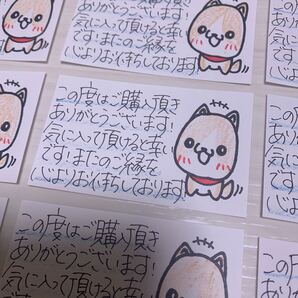 気に入って頂けると幸い
です!またのご縁を
心よりお待ちしております!
この度はご購入頂き
ありがとうございます!
気に入って頂けると幸い
です!またのご縁を
心よりお待ちしております!
この度はご購入頂き
ありがとうございます!
気に入って頂けると幸い